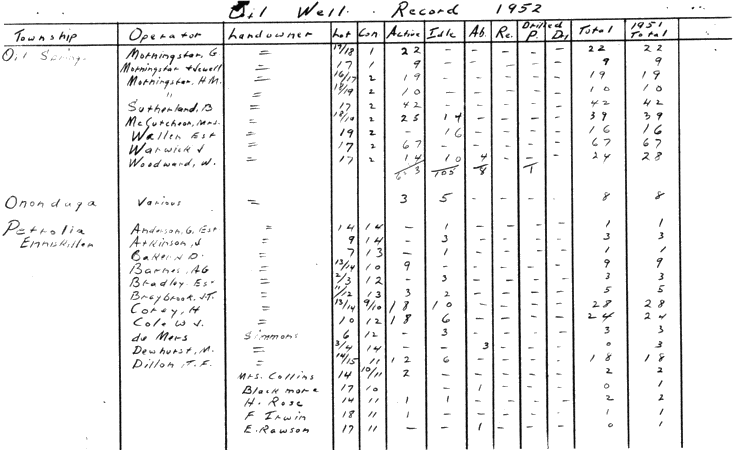 Oil Well Record 1952
Township Operator Landowner Lot Con Active Idle Ab. Re. Drilled P. Dry Total 1951 Total
Oil Springs Morningstar, G = 17/18 1 22 - - - - - 22 22
Morningstar + Jewell = 17 1 9 - - - - - 9 9
Morningstar, H.M. = 16/17 2 19 - - - - - 19 19
" = 18/19 2 10 - - - - - 10 10
Sutherland, B = 17 2 42 - - - - - 42 42
McCutcheon, Mrs. = 18/19 2 25 14 - - - - 39 39
Wallen Est = 19 2 - 16 - - - - 16 16
Warwick J = 17 2 67 - - - - - 67 67
Woodward, W. = 17 2 14 10 4 - - - 24 28
105 8 1
Ononduga Various = 3 5 - - - - 8 8
Petrolia Anderson, G. Est = 14 14 - 1 - - - - 1 1
Enniskillen Atkinson, J = 9 14 - 3 - - - - 3 3
Baker, J D. = 7 13 - 1 - - - - 1 1
Barnes, AG = 13/14 10 9 - - - - - 9 9
Bradley Est = 2/3 12 - 3 - - - - 3 3
Braybrook, J.T. = 11/12 13 3 2 - - - - 5 5
Corey, H = 13/14 9/10 18 10 - - - - 28 28
Cole W J. = 10 12 18 6 - - - - 24 24
du Mars Simmons 6 12 - 3 - - - - 3 3
Dewhurst, M. = 3/4 14 - - 3 - - - 0 3
Dillon, T. F. = 14/15 11 12 6 - - - - 18 18
Mrs. Collins 14 10/11 2 - - - - - 2 2
Blackmore 17 10 - - 1 - - - 0 1
H. Rose 14 11 1 1 - - - - 2 2
F Irwin 18 11 1 - - - - - 1 1
E. Rawson 17 11 - - 1 - - - 0 1